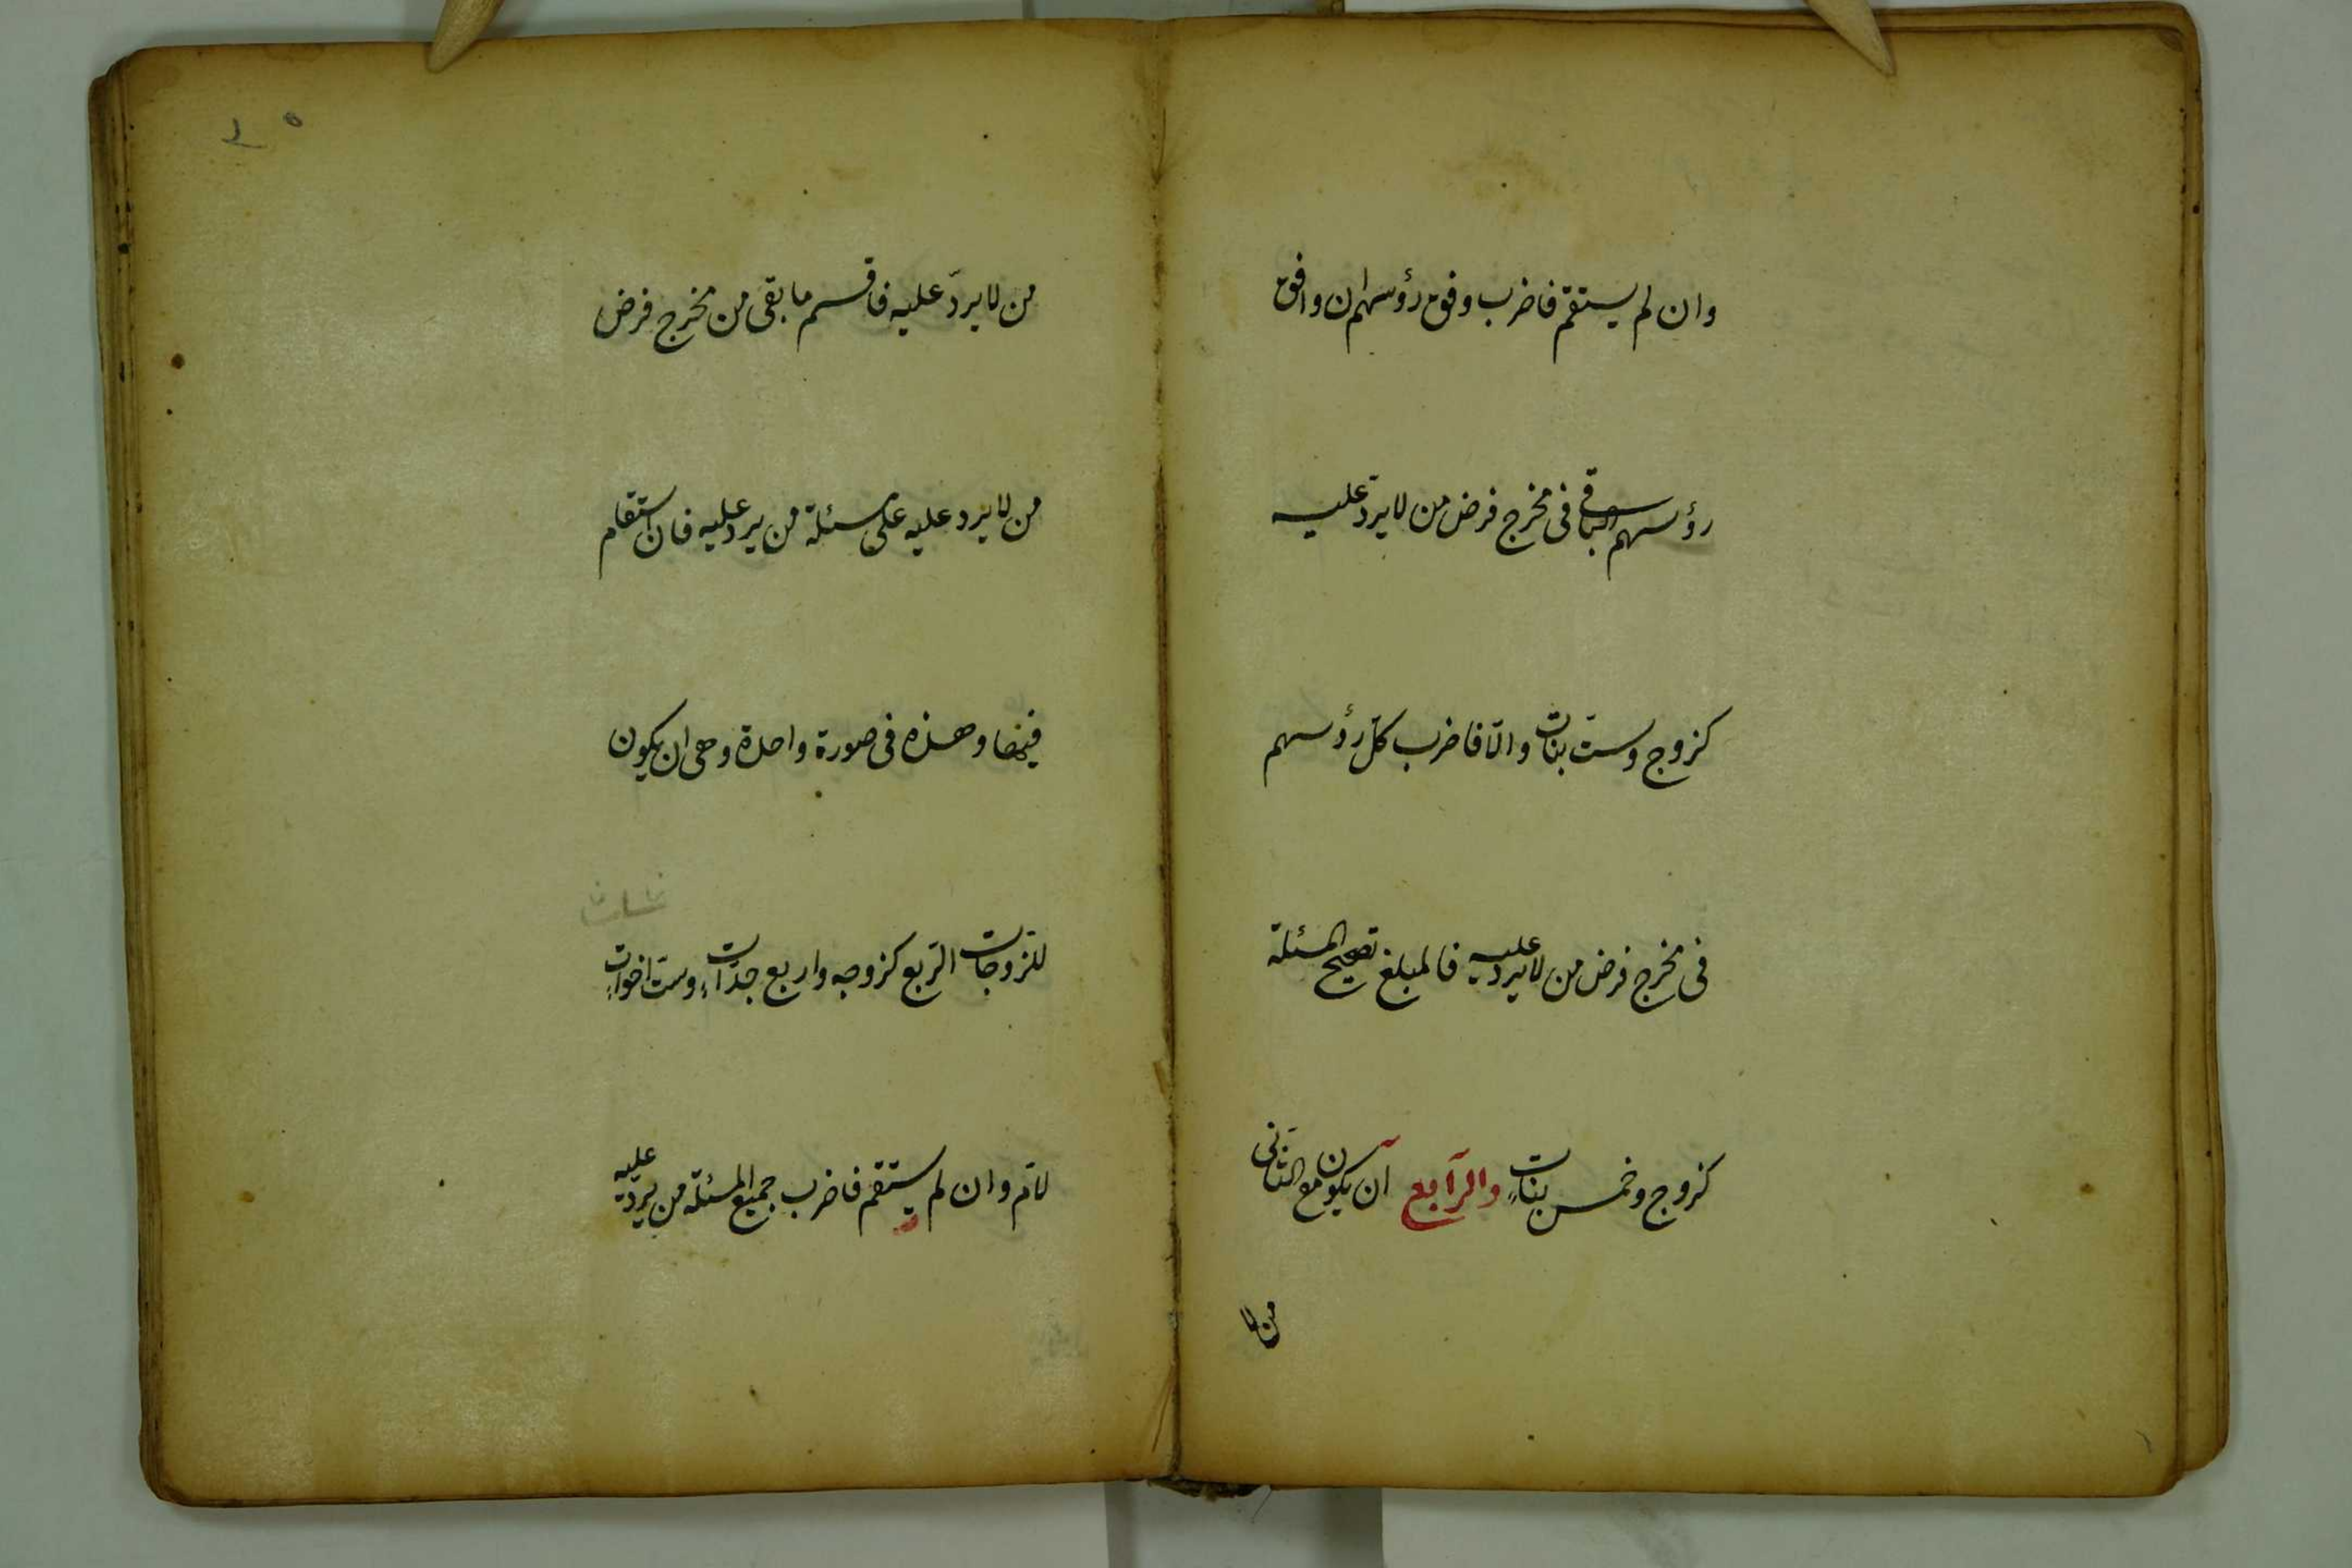 وان لم يستقم فاضرب وفق رؤسهم ان وافق
رؤسهم الباقى فى مخرج فرض من لا يردّ عليه
كزوج وستّ بنات والّا فاضرب كلّ رؤسهم
فى مخرج فرض من لا يرد عليه فالمبلغ تصحيح المسئلة
كزوج وخمس بناتٍ والرّابع ان يكون مع الثّانى
من لا
من لا يردّ عليه فاقسم ما بقى من مخرج فرض
من لا يرد عليه على مسئلة من يرد عليه فان استقام
فبها وهذه فى صورة واحدة وهى ان يكون
للزوجات الرّبع كزوجه واربع جدّاتٍ وستّ اخواتٍ
لامّ وان لم يستقم فاضرب جميع المسئلة من يردّ عليه